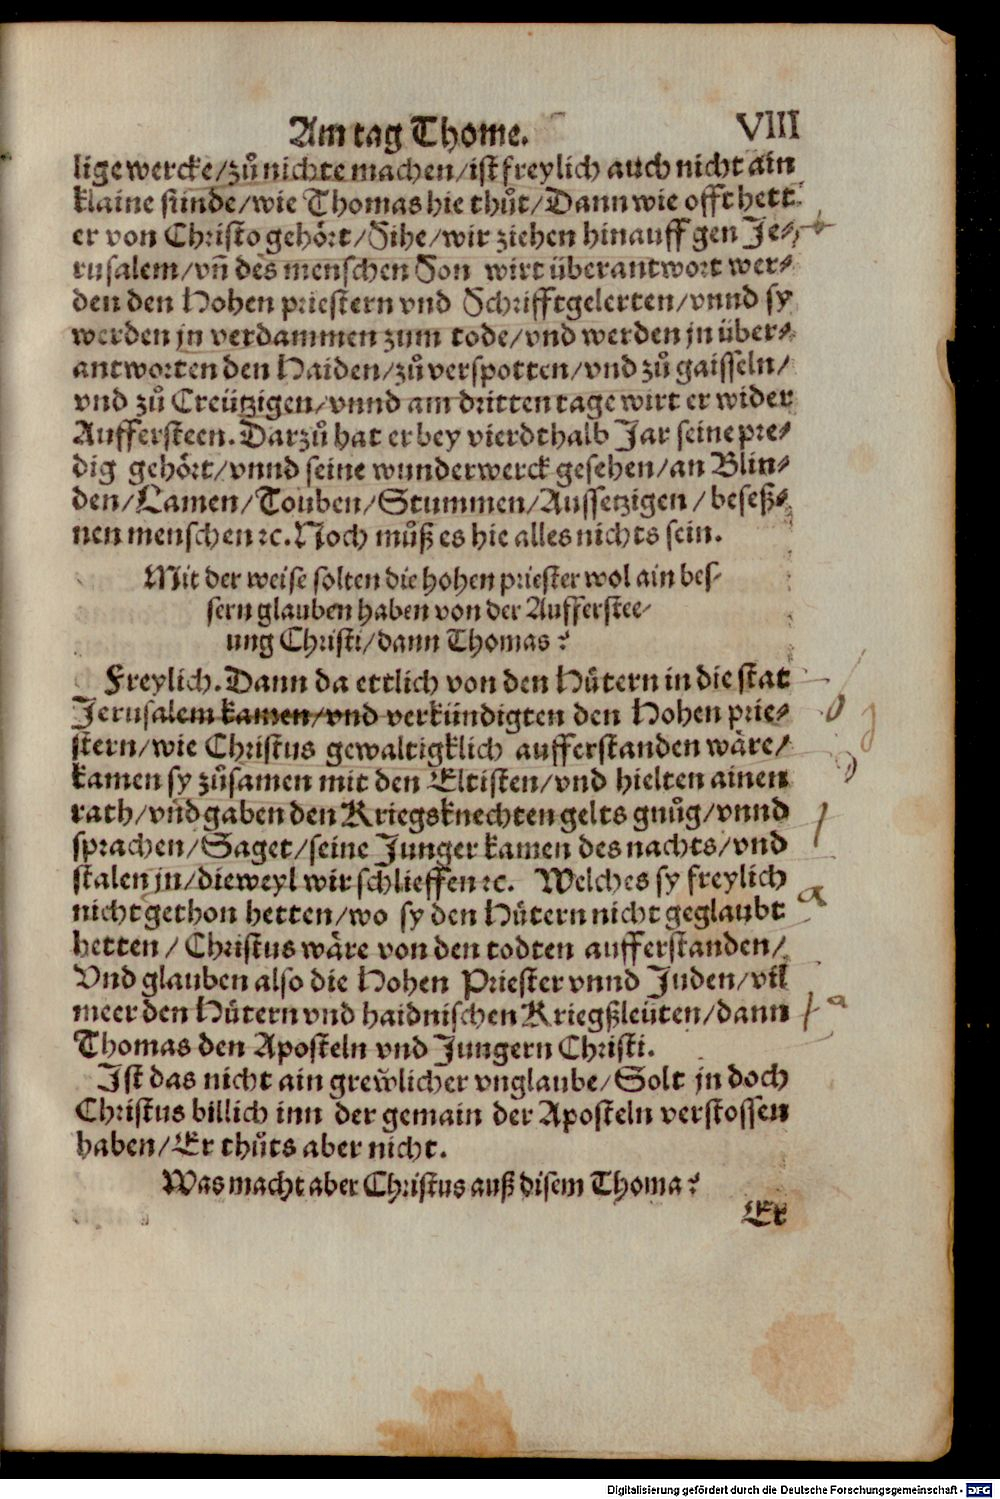 Am tag Thome. VIII
lige wercke/zů nichte machen/ist freylich auch nicht ain
klaine sünde/wie Thomas hie thůt/Dann wie offt hett
er von Christo gehört/Sihe/wir ziehen hinauff gen Je⸗
rusalem/vñ des menschen Son wirt überantwort wer⸗
den den Hohen priestern vnd Schrifftgelerten/vnnd sy
werden jn verdammen zum tode/vnd werden jn über⸗
antworten den Haiden/zů verspotten/vnd zů gaisseln/
vnd zů Creützigen/vnnd am dritten tage wirt er wider
Auffersteen. Darzů hat er bey vierdthalb Jar seine pre⸗
dig gehört/vnnd seine wunderwerck gesehen/an Blin⸗
den/Lamen/Touben/Stummen/Aussetzigen/beseß⸗
nen menschen ꝛc. Noch můß es hie alles nichts sein.
Mit der weise solten die hohen priester wol ain bes⸗
sern glauben haben von der Aufferstee⸗
ung Christi/dann Thomas?
Freylich. Dann da ettlich von den Hůtern in die stat
Jerusalem kamen/vnd verkündigten den Hohen prie⸗
stern/wie Christus gewaltigklich aufferstanden wäre/
kamen sy zůsamen mit den Eltisten/vnd hielten ainen
rath/vnd gaben den Kriegsknechten gelts gnůg/vnnd
sprachen/Saget/seine Junger kamen des nachts/vnd
stalen jn/dieweyl wir schlieffen ꝛc. Welches sy freylich
nicht gethon hetten/wo sy den Hůtern nicht geglaubt
hetten/Christus wäre von den todten aufferstanden/
Vnd glauben also die Hohen Priester vnnd Juden/vil
meer den Hůtern vnd haidnischen Kriegßleüten/dann
Thomas den Aposteln vnd Jungern Christi.
Ist das nicht ain grewlicher vnglaube/Solt jn doch
Christus billich inn der gemain der Aposteln verstossen
haben/Er thůts aber nicht.
Was macht aber Christus auß disem Thoma?
Er
Digitalisierung gefördert durch die Deutsche Forschungsgemeinschaft - DFG